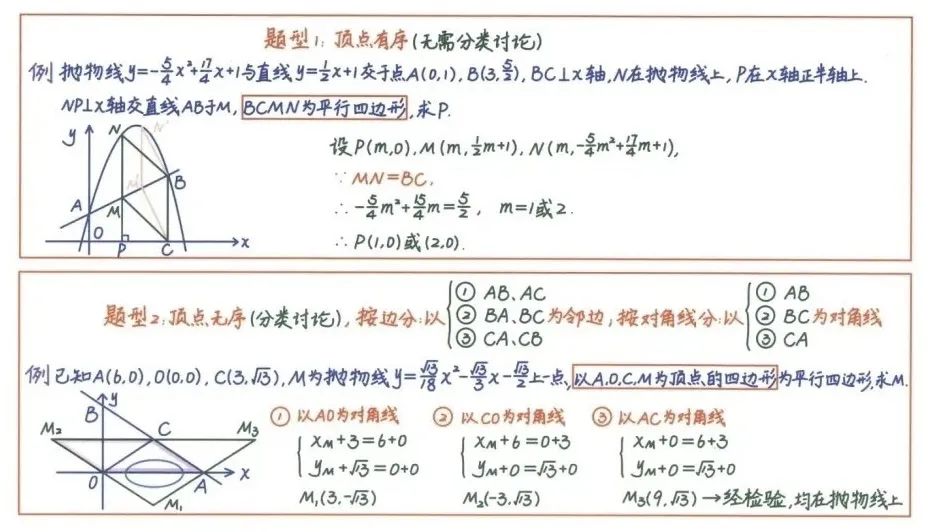 题型1: 顶点有序(无需分类讨论)
例 抛物线y=-5/4x²+17/4x+1与直线y=1/2x+1交于点A(0,1), B(3,5/2), BC⊥x轴,N在抛物线上, P在x轴正半轴上.
NP⊥x轴交直线AB于M, BCMN为平行四边形, 求P.
设P(m,0), M(m,1/2m+1), N(m,-5/4m²+17/4m+1),
∵ MN=BC,
∴ -5/4m²+15/4m=5/2, m=1或2.
∴ P(1,0)或(2,0).
y
N
N'
B
M'
A
M
O
P
C
x
题型2: 顶点无序(分类讨论), 按边分: 以 ① AB、AC ② BA、BC ③ CA、CB 为邻边; 按对角线分: 以 ① AB ② BC ③ CA 为对角线
例 已知A(6,0), O(0,0), C(3,√13), M为抛物线y=√13/18x²-√13/3x-√13/2上一点, 以A,O,C,M为顶点的四边形为平行四边形,求M.
① 以AO为对角线
xM+3=6+0
yM+√13=0+0
M₁(3,-√13)
② 以CO为对角线
xM+6=0+3
yM+0=√13+0
M₂(-3,√13)
③ 以AC为对角线
xM+0=6+3
yM+0=√13+0
M₃(9,√13) →经检验,均在抛物线上
B
y
M₂
C
M₃
O
A
x
M₁